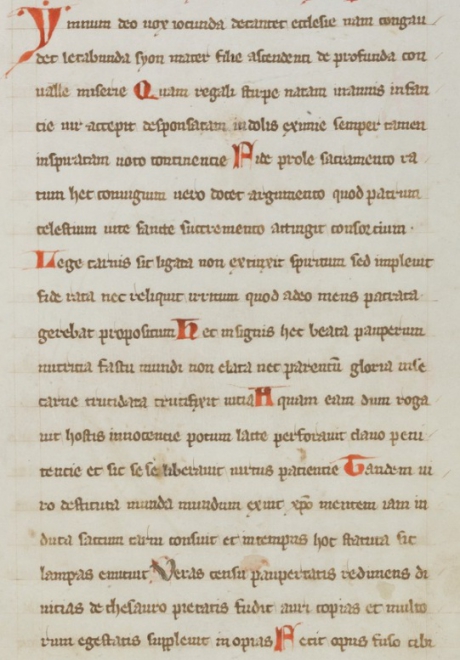 Ymnum deo vox iocunda decantet ecclesie nam congau
det letabunda syon mater filie ascendenti de profunda con
ualle miserie Quam regali stirpe natam uiannis infan
cie uir accepit desponsatam indolis eximie semper tamen
inspiratam uoto continencie Fide prole sacramento ra
tum hec coniugium uero docet argumento quod patrum
celestium uite sancte succremento attingit consorcium
Lege carnis sic ligata non extinxit spiritum sed impleuit
fide rata nec reliquit irritum quod adeo mens patrata
gerebat propositum Hec insignis hec beata pauperum
nutricia fastu mundi non elata nec parentū gloria uise
carne trucidata crucifixit uicia Aquam eiam dum roga
uit hostis innocencie potum lacte perforauit clauo peni
tencie et sic se se liberauit uirtus paciencie Tandem ui
ro destituta munda mundum exuit xp̄o mentem iam in
duta saccum carni consuit et intempus hoc statuta sic
lampas emicuit Veras censu paupertatis redimens di
uicias de thesauro pietatis fudit auri copias et multo
rum egestatis suppleuit inopias Fecit opus fuso cibi